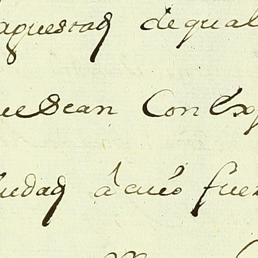 apuestas de qual
ue sean Con Exp
iudad, a cuio fuer